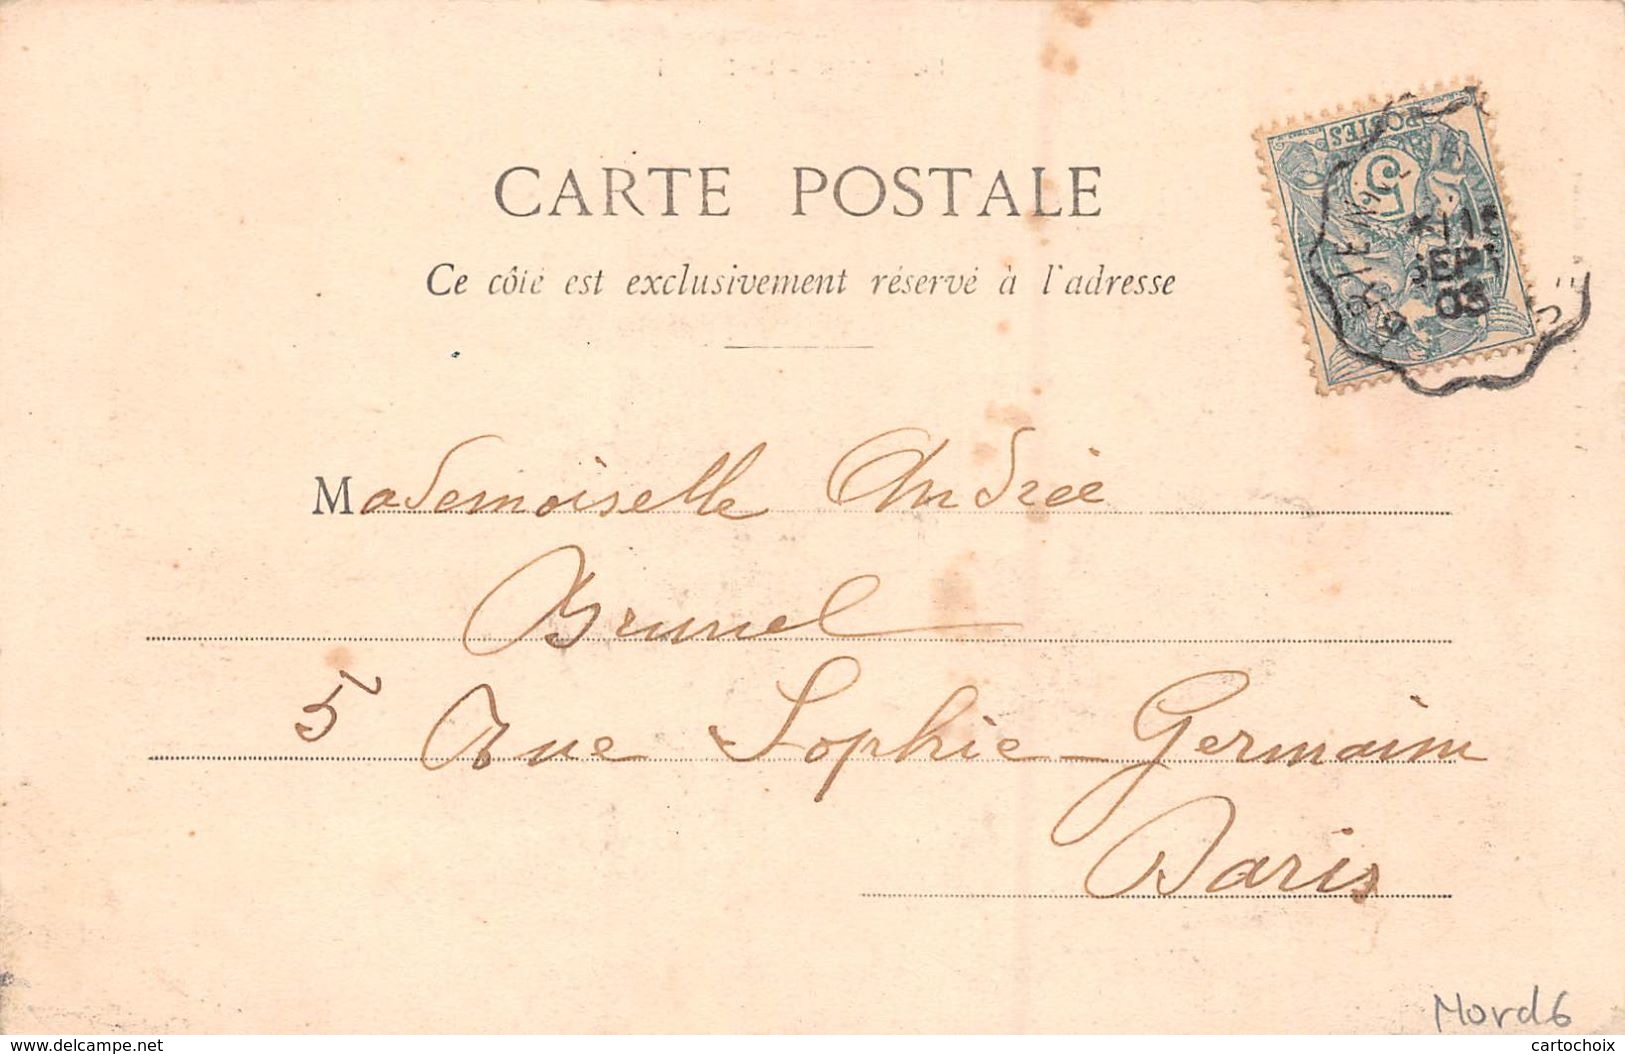 CARTE POSTALE
Ce côté est exclusivement réservé à l'adresse
POSTES
5
SEPT
03
Mademoiselle Andrée
Brunel
5 Rue Sophie Germain
Paris
Mord6
www.delcampe.net
cartochoix